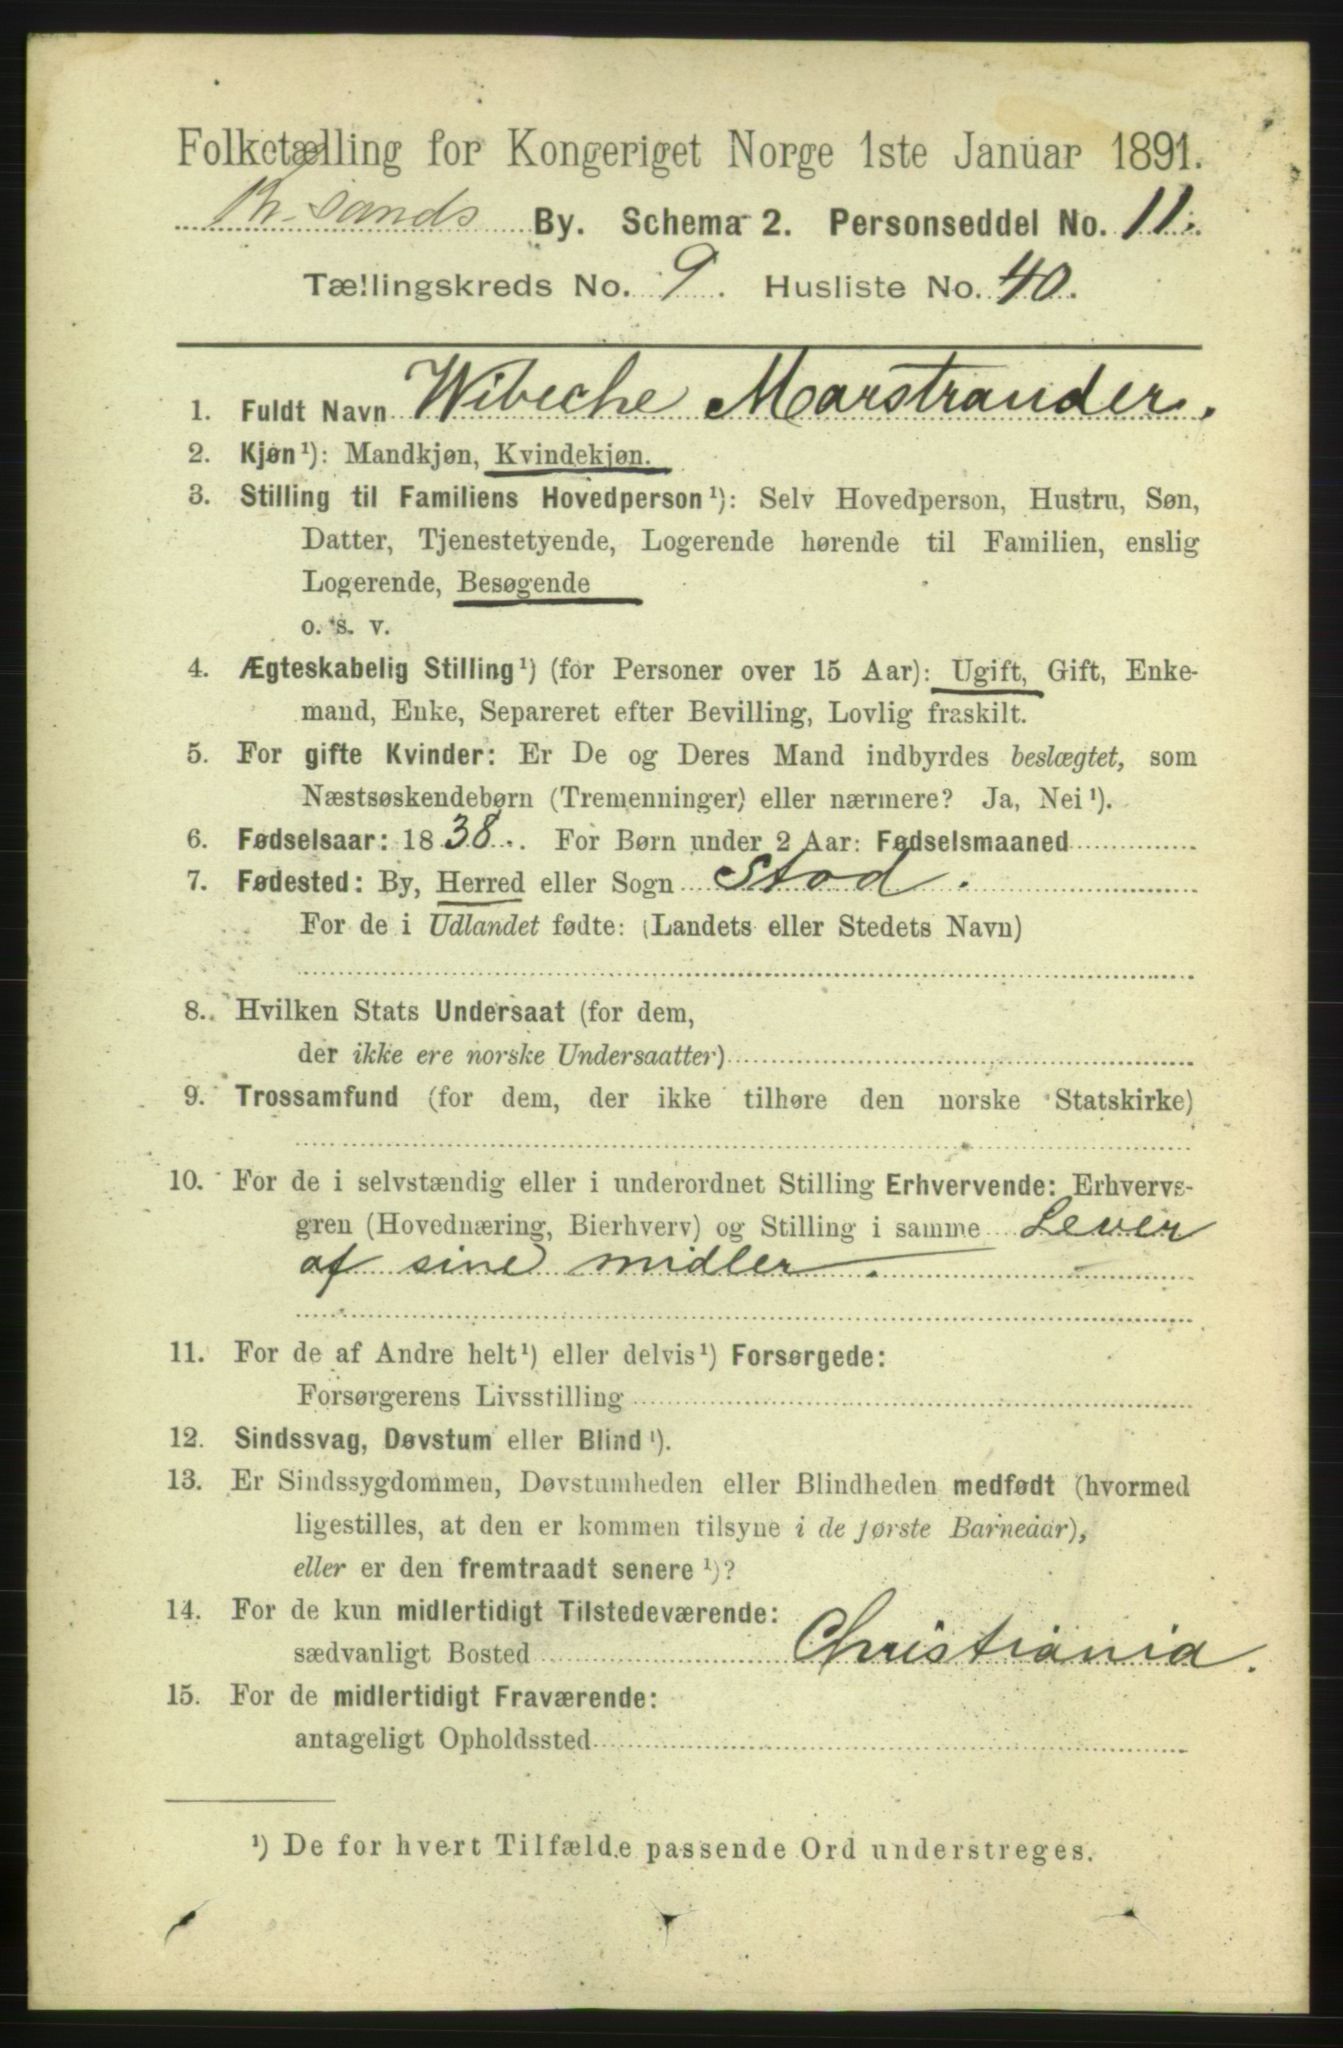 Folketælling for Kongeriget Norge 1ste Januar 1891.
Kr. sands By. Schema 2. Personseddel No. 11.
Tællingskreds No. 9. Husliste No. 40.
1. Fuldt Navn Wibeche Marstrander.
2. Kjøn¹): Mandkjøn, Kvindekjøn.
3. Stilling til Familiens Hovedperson¹): Selv Hovedperson, Hustru, Søn,
Datter, Tjenestetyende, Logerende hørende til Familien, enslig
Logerende, Besøgende
o. s. v.
4. Ægteskabelig Stilling¹) (for Personer over 15 Aar): Ugift, Gift, Enke-
mand, Enke, Separeret efter Bevilling, Lovlig fraskilt.
5. For gifte Kvinder: Er De og Deres Mand indbyrdes beslægtet, som
Næstsøskendebørn (Tremenninger) eller nærmere? Ja, Nei¹).
6. Fødselsaar: 1838. For Børn under 2 Aar: Fødselsmaaned
7. Fødested: By, Herred eller Sogn Stod.
For de i Udlandet fødte: (Landets eller Stedets Navn)
8. Hvilken Stats Undersaat (for dem,
der ikke ere norske Undersaatter)
9. Trossamfund (for dem, der ikke tilhøre den norske Statskirke)
10. For de i selvstændig eller i underordnet Stilling Erhvervende: Erhvervs-
gren (Hovednæring, Bierhverv) og Stilling i samme Lever
af sine midler.
11. For de af Andre helt¹) eller delvis¹) Forsørgede:
Forsørgerens Livsstilling
12. Sindssvag, Døvstum eller Blind¹).
13. Er Sindssygdommen, Døvstumheden eller Blindheden medfødt (hvormed
ligestilles, at den er kommen tilsyne i de første Barneaar),
eller er den fremtraadt senere¹)?
14. For de kun midlertidigt Tilstedeværende:
sædvanligt Bosted Christiania.
15. For de midlertidigt Fraværende:
antageligt Opholdssted
¹) De for hvert Tilfælde passende Ord understreges.